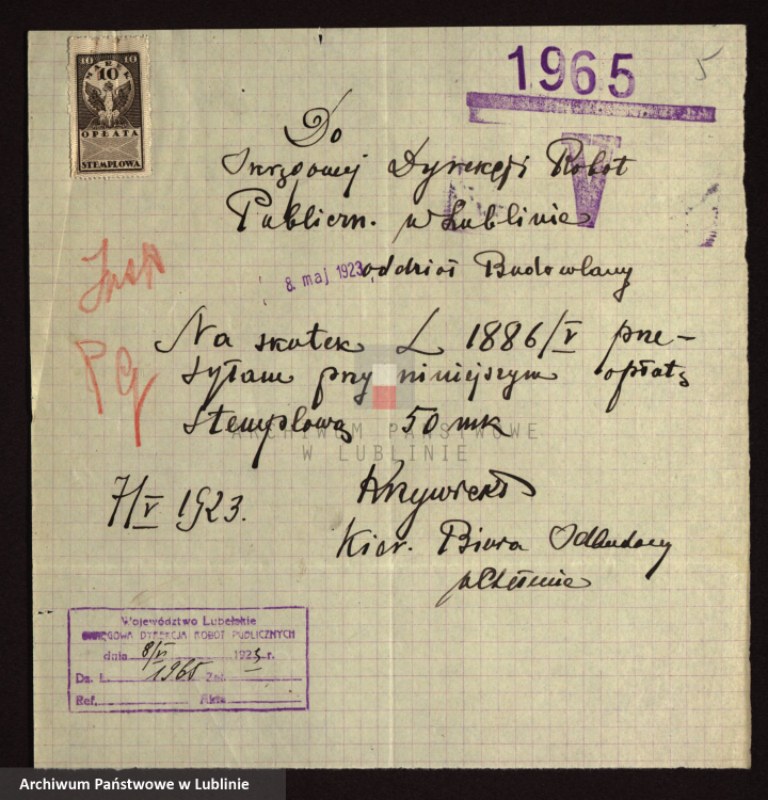 10 10
MAREK
10
OPŁATA
STEMPLOWA
1965
5
V
Do
Okręgowej Dyrekcji Robót
Publiczn. w Lublinie
8. maj 1923
oddział Budowlany
Na skutek L 1886/V prze-
syłam przy niniejszym opłatę
Stemplową 50 mk
ARCHIWUM PAŃSTWOWE
W LUBLINIE
7/V 1923.
Kier. Biura Odbudowy
w Chełmie
Województwo Lubelskie
OKRĘGOWA DYREKCJA ROBÓT PUBLICZNYCH
dnia 8/V 1923 r.
Dz. L. 1965 Zał.
Ref. Akta
Archiwum Państwowe w Lublinie